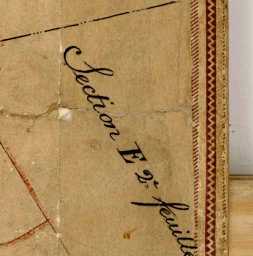 Section E 2e feuille